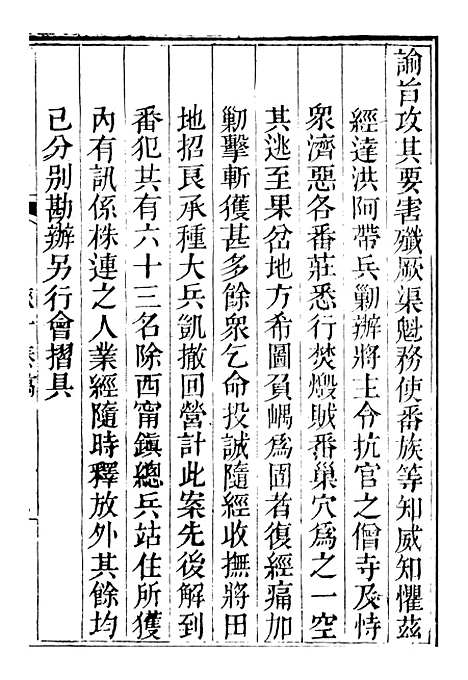 諭旨攻其要害殲厥渠魁務使番族等知威知懼茲
經達洪阿帶兵勦辦將主令抗官之僧寺及恃
衆濟惡各番莊悉行焚燬賊番巢穴爲之一空
其逃至果岔地方希圖負嵎爲固者復經痛加
勦擊斬獲甚多餘衆乞命投誠隨經收撫將田
地招良承種大兵凱撤回營計此案先後解到
番犯共有六十三名除西甯鎭總兵站住所獲
內有訊係株連之人業經隨時釋放外其餘均
已分別勘辦另行會摺具